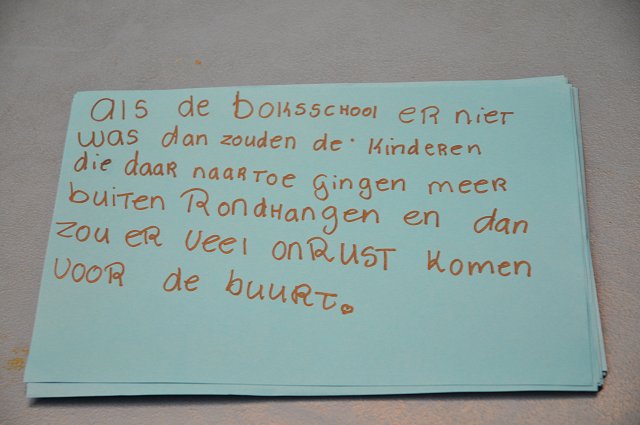 als de boksschool er niet
was dan zouden de kinderen
die daar naartoe gingen meer
buiten Rondhangen en dan
zou er veel onrust komen
voor de buurt.